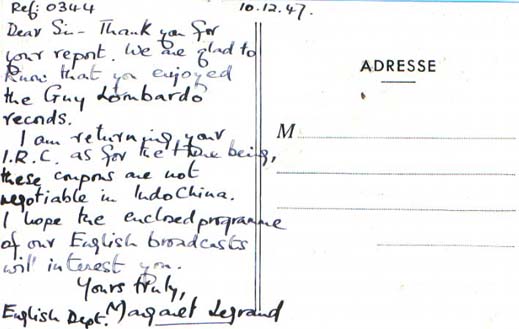 Ref: 0344
10.12.47.
Dear Sir - Thank you for
your report. We are glad to
know that you enjoyed
the Guy Lombardo
records.
I am returning your
I.R.C. as for the time being,
these coupons are not
negotiable in IndoChina.
I hope the enclosed programme
of our English broadcasts
will interest you.
Yours truly,
English Dept. Margaret Legrand
ADRESSE
M